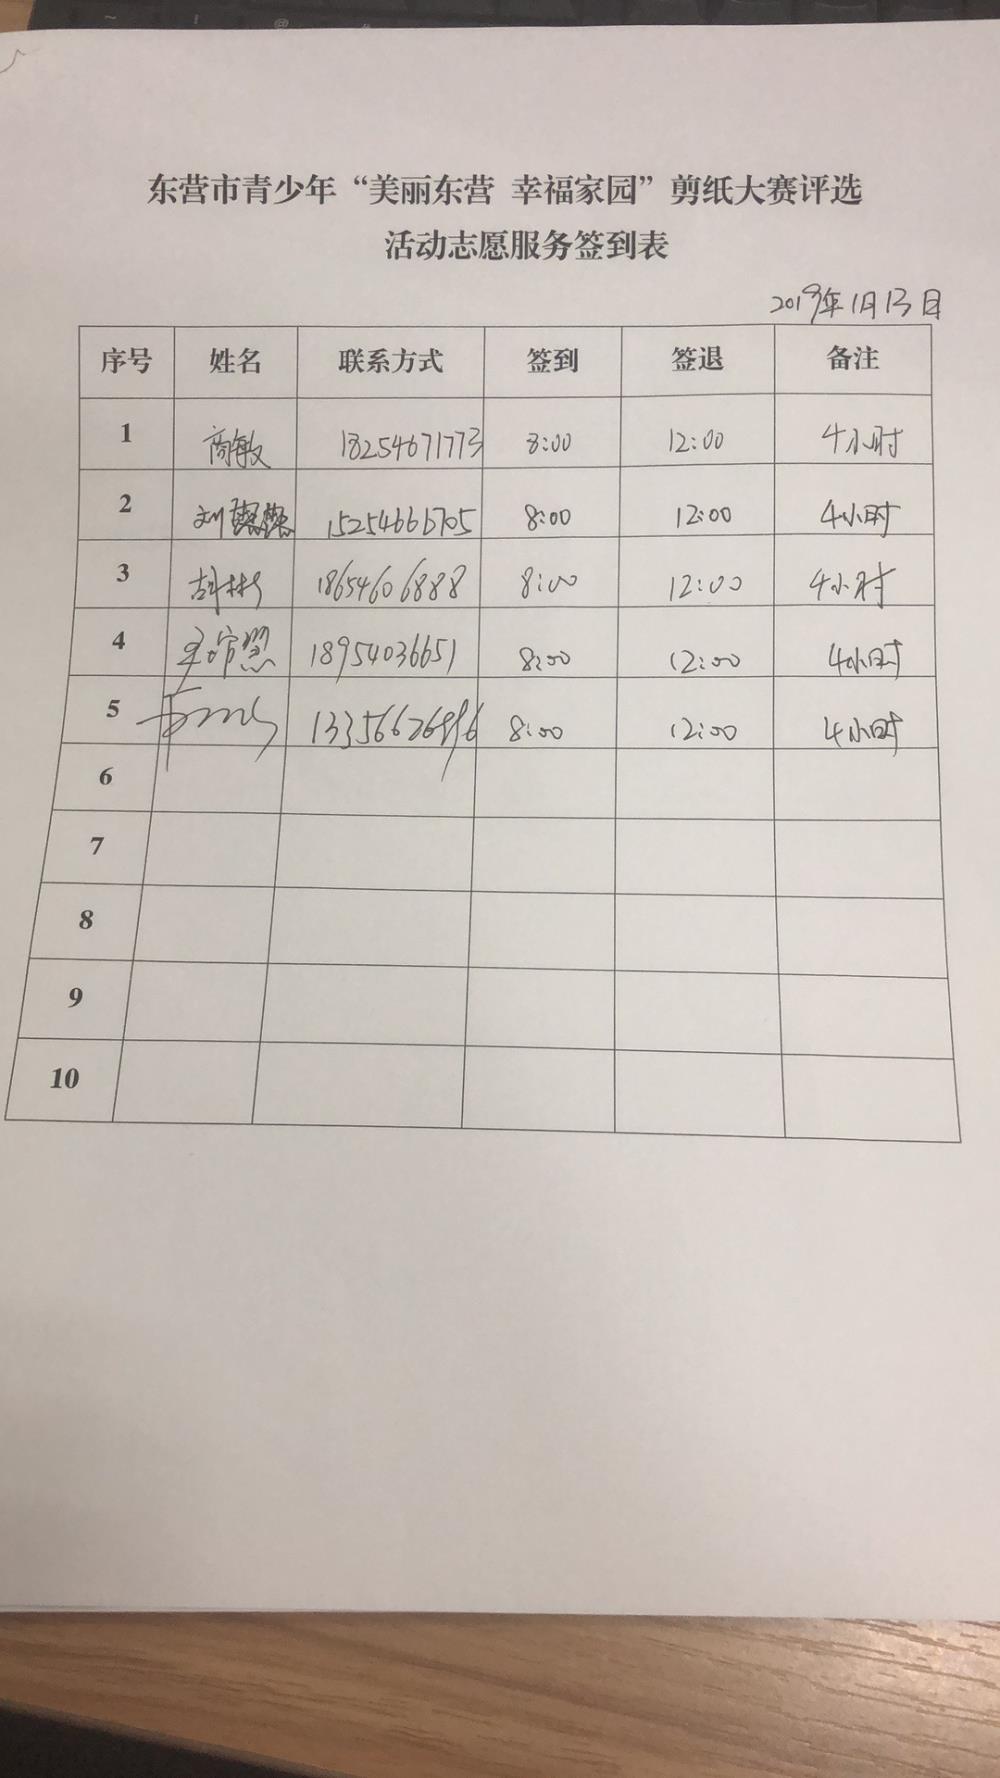 东营市青少年“美丽东营 幸福家园”剪纸大赛评选
活动志愿服务签到表
2019年1月13日
序号 姓名 联系方式 签到 签退 备注
1 商敏 18254671773 8:00 12:00 4小时
2 刘 15254666705 8:00 12:00 4小时
3 胡彬 18654606888 8:00 12:00 4小时
4 18954036651 8:00 12:00 4小时
5 8:00 12:00 4小时
6
7
8
9
10